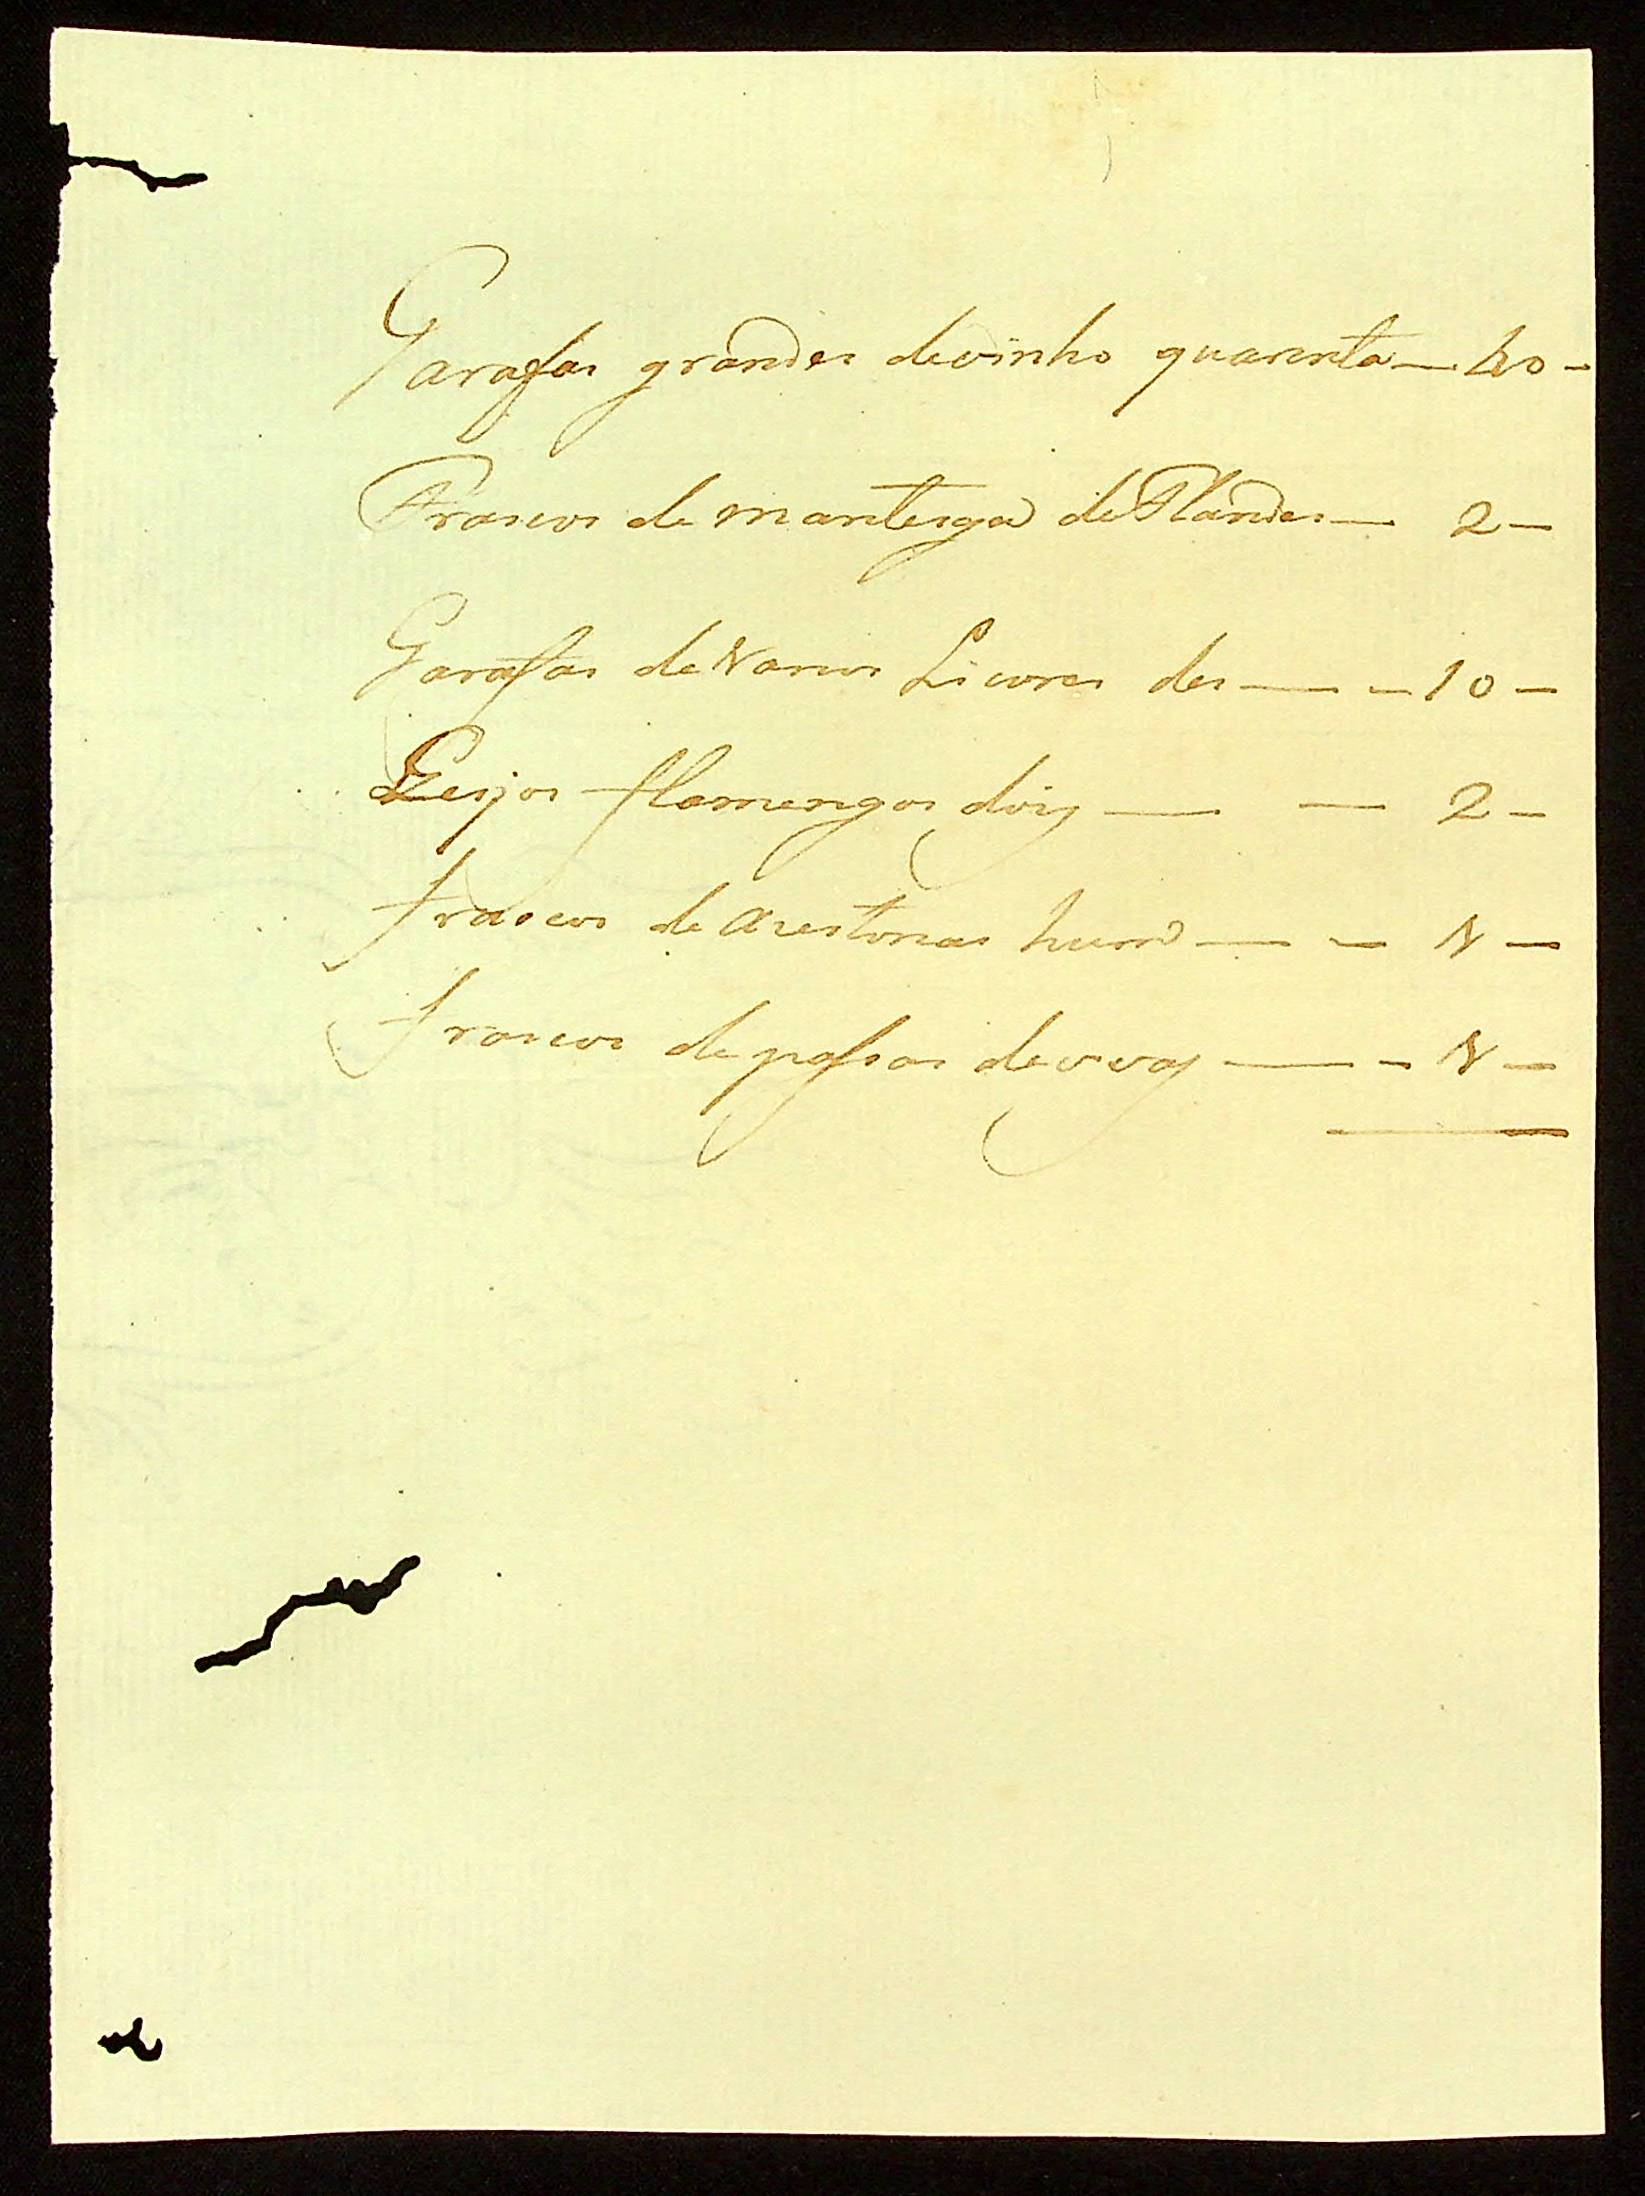 Garafas grandes devinho quarenta — 40 -
Frascos de manteiga de Flandes — 2 -
Garafas de Varios Licores des — - 10 -
Qeijos flamengos dois — — 2 -
frascos de azeitonas hum — - 1 -
frascos de passas de uvas — - 1 -